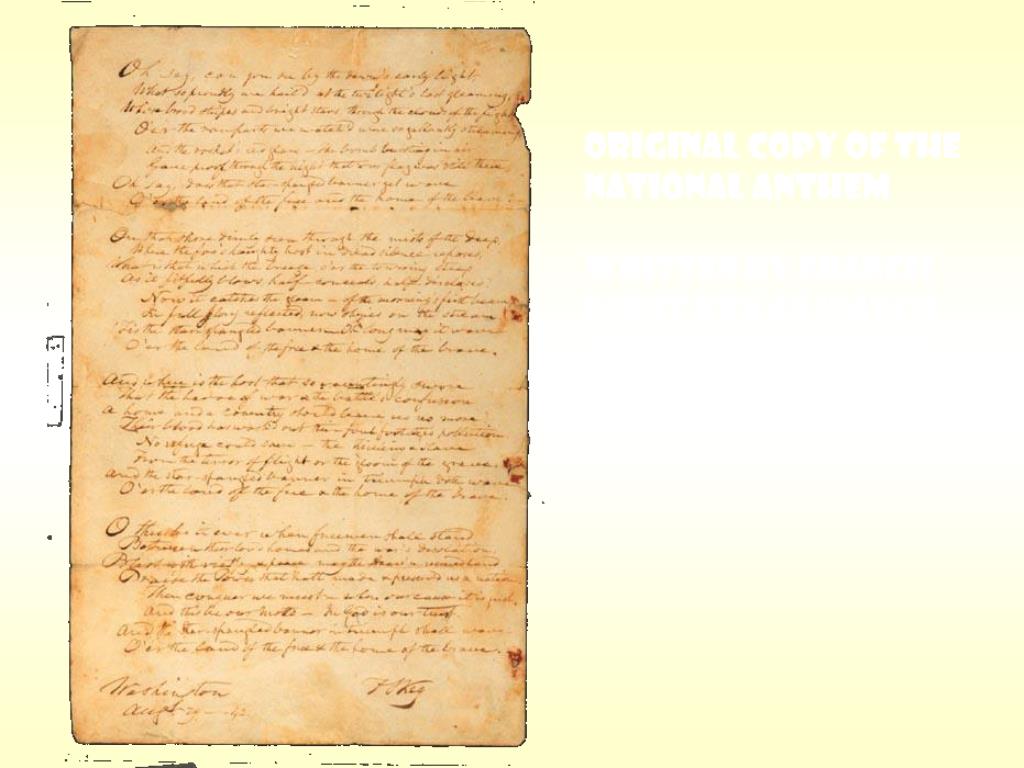 Oh say, can you see by the dawn's early light,
What so proudly we hail'd at the twilight's last gleaming,
Whose broad stripes and bright stars through the clouds of the fight
O'er the ramparts we watch'd were so gallantly streaming?
And the rocket's red glare – the bomb bursting in air
Gave proof through the night that our flag was still there,
Oh say, does that star-spangled banner yet wave
O'er the land of the free and the home of the brave?
On that shore dimly seen through the mists of the deep,
Where the foe's haughty host in dread silence reposes,
What is that which the breeze, o'er the towering steep,
As it fitfully blows, half conceals half discloses?
Now it catches the gleam – of the morning's first beam
In full glory reflected now shines on the stream
'Tis the star-spangled banner – Oh long may it wave
O'er the land of the free & the home of the brave.
And where is the host that so vauntingly swore
that the havoc of war & the battle's confusion
A home and a country should leave us no more
Their blood has wash'd out their foul footsteps pollution
No refuge could save – the hireling & slave
From the terror of flight or the gloom of the grave
And the star-spangled banner in triumph doth wave
O'er the land of the free & the home of the brave.
O thus be it ever when freemen shall stand
Between their lov'd homes and the war's desolation
Blest with vict'ry & peace may the
Praise the Power that hath made & preserved us a nation
Then conquer we must – when our cause it is just,
And this be our motto – In God is our trust
And the star-spangled banner in triumph shall wave
O'er the land of the free & the home of the brave.
Washington
F S Key
ORIGINAL COPY OF THE
NATIONAL ANTHEM